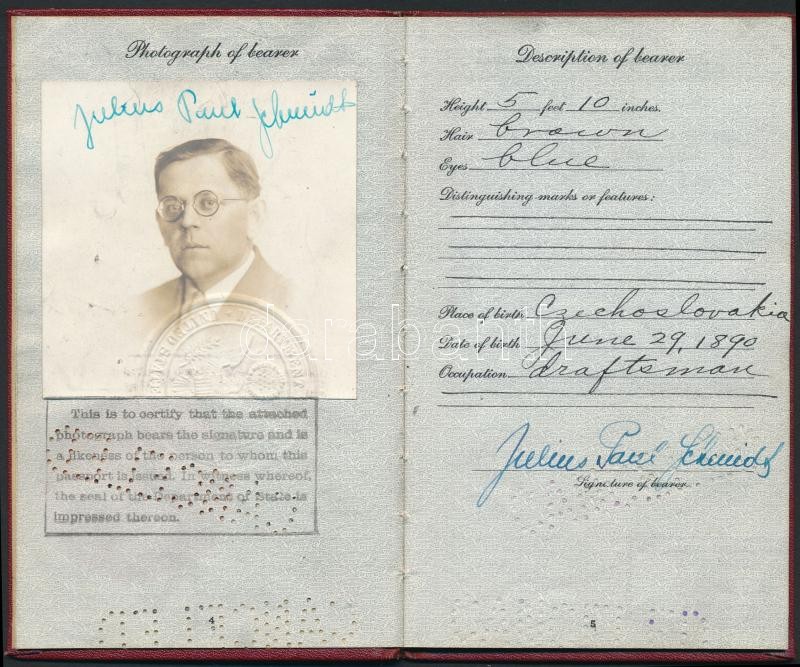 Photograph of bearer
Julius Paul Schmidt
This is to certify that the attached
photograph bears the signature and is
a likeness of the person to whom this
passport is issued. In witness whereof,
the seal of the Department of State is
impressed thereon.
4
Description of bearer
Height 5 feet 10 inches.
Hair brown
Eyes blue
Distinguishing marks or features:
Place of birth Czechoslovakia
Date of birth June 29, 1890
Occupation draftsman
Julius Paul Schmidt
Signature of bearer
5
darabanth